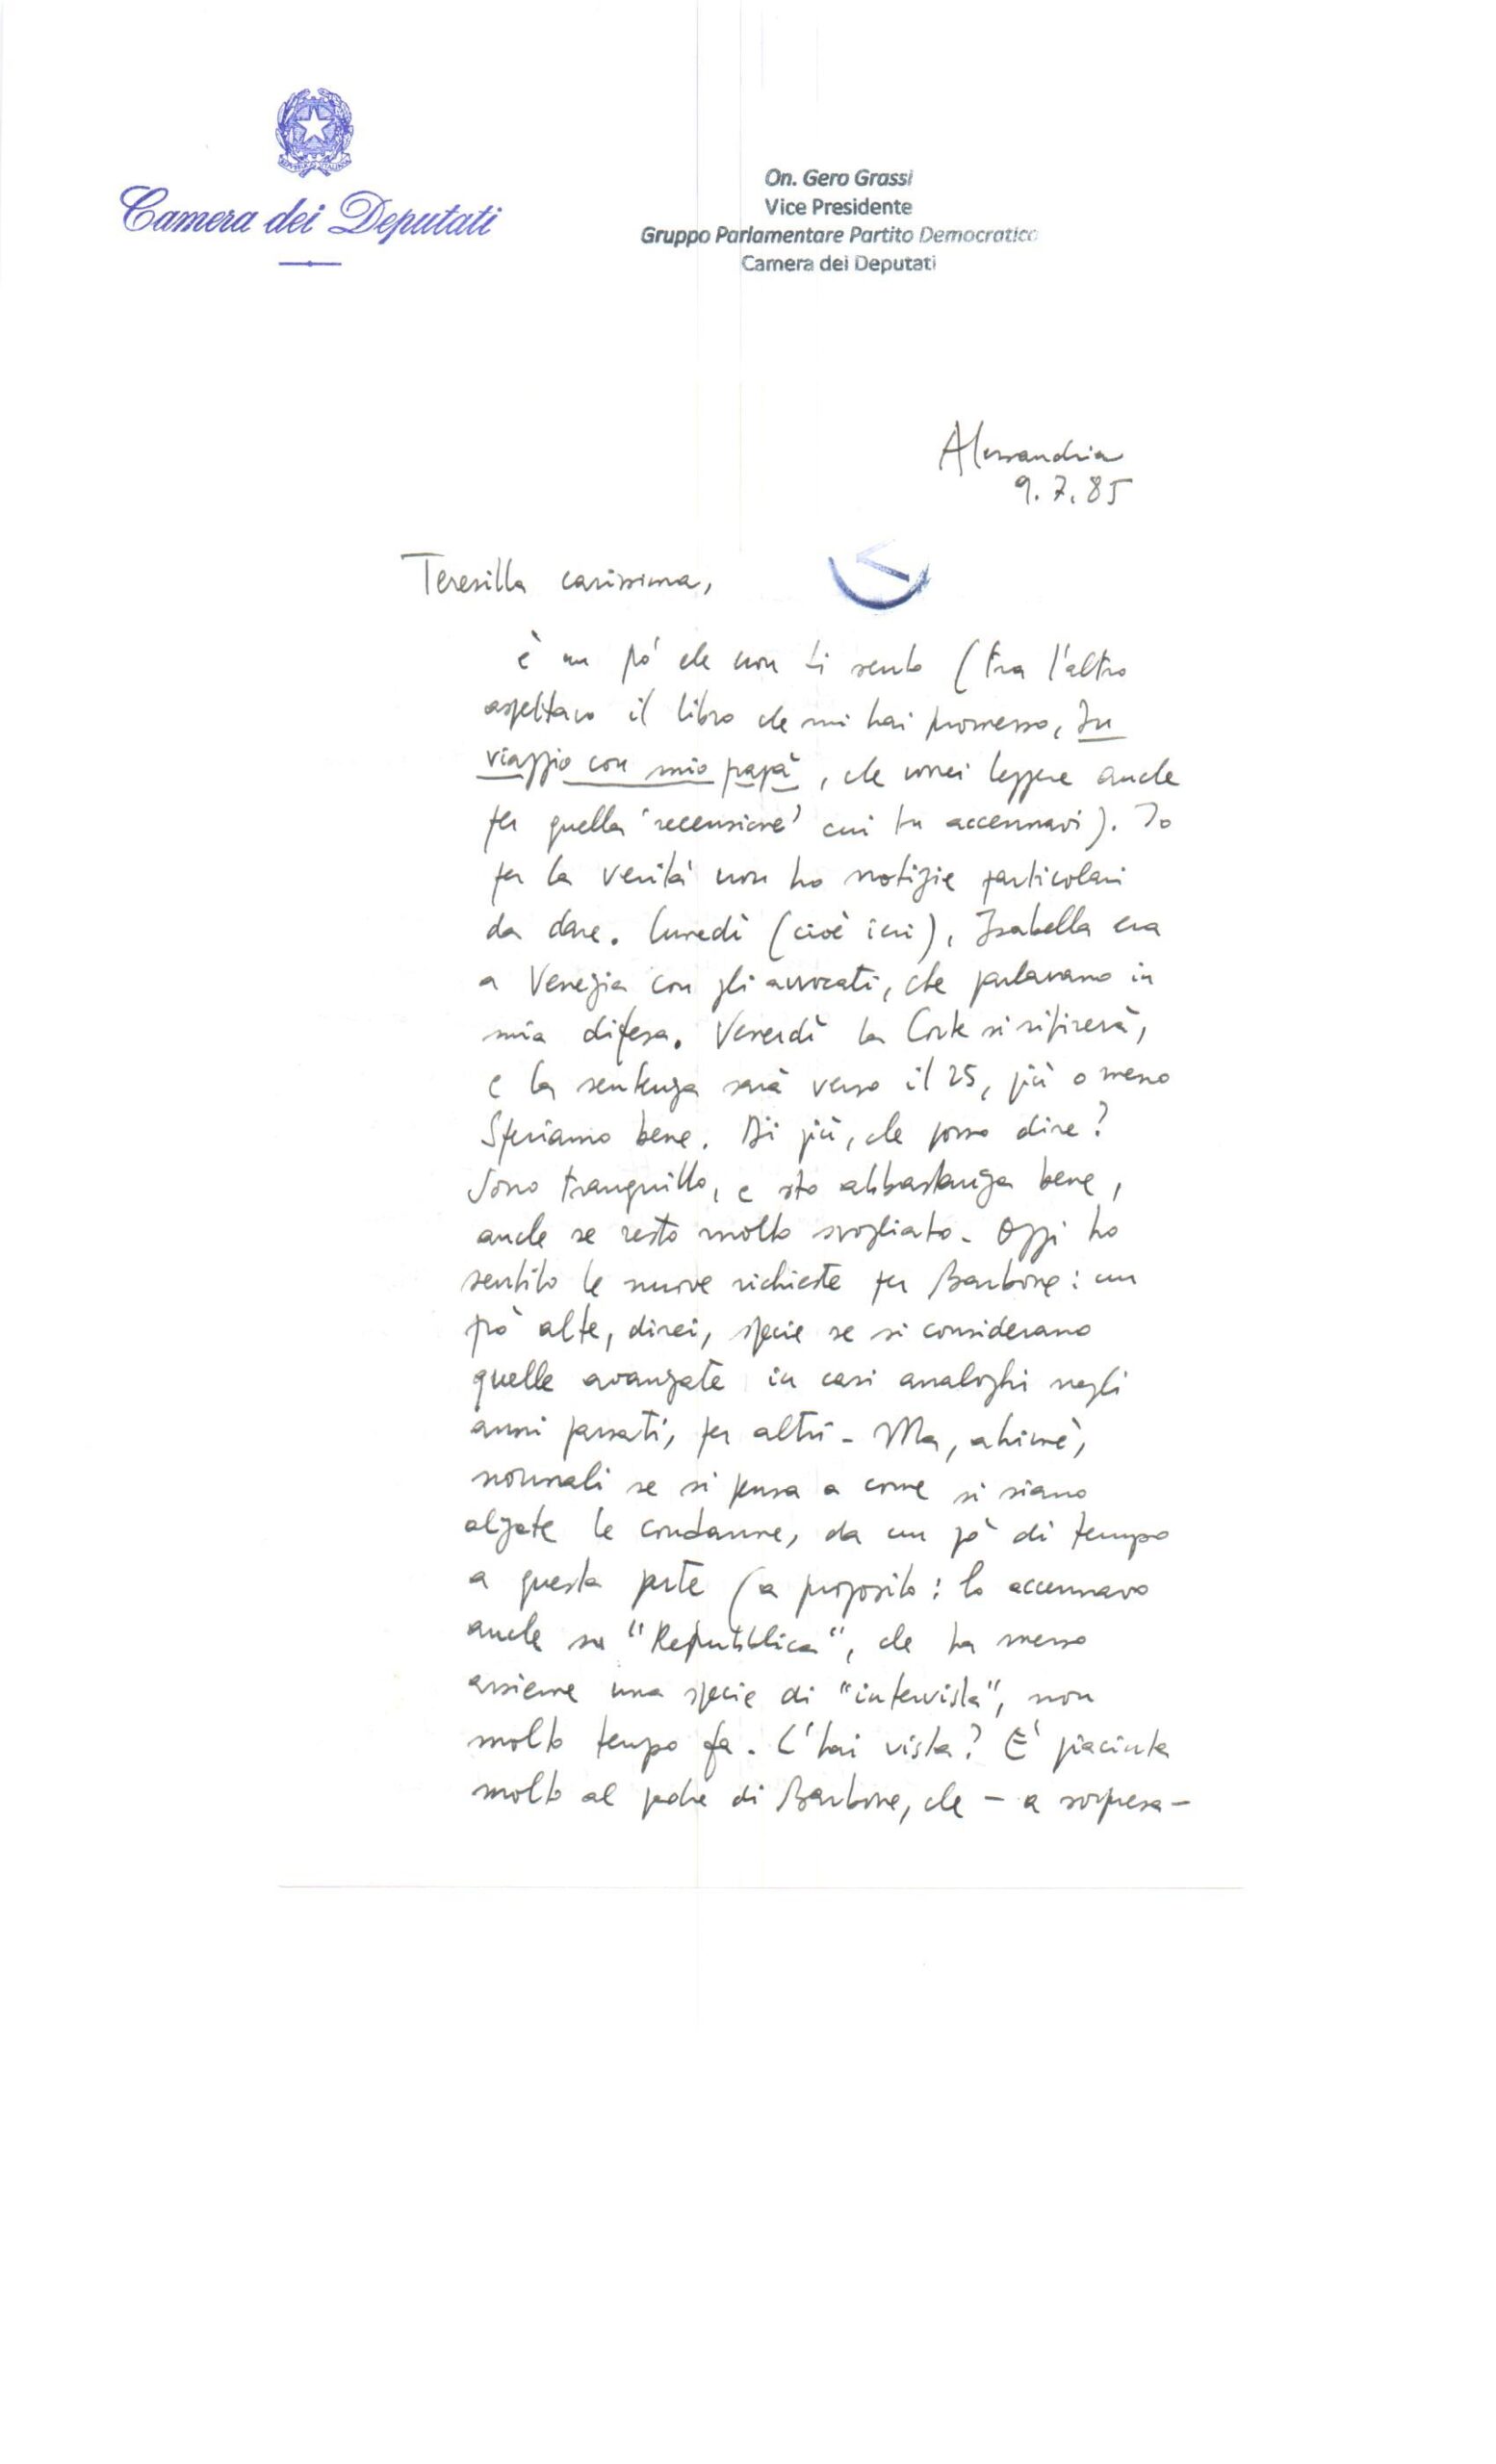 Camera dei Deputati
On. Gero Grassi
Vice Presidente
Gruppo Parlamentare Partito Democratico
Camera dei Deputati
Alessandria
9.7.85
Teresilla carissima,
è un pó che non ti sento (tra l'altro
aspettavo il libro che mi hai promesso, In
viaggio con mio papà, che vorrei leggere anche
per quella 'recensione' cui tu accennavi). Io
per la verità non ho notizie particolari
da dare. Lunedì (cioè ieri), Isabella era
a Venezia con gli avvocati, che parlavano in
mia difesa. Venerdì la Corte si ritirerà,
e la sentenza sarà verso il 25, più o meno
Speriamo bene. Di più, che posso dire?
Sono tranquillo, e sto abbastanza bene,
anche se resto molto svogliato. Oggi ho
sentito le nuove richieste per Barbone: un
pò alte, direi, specie se si considerano
quelle avanzate in casi analoghi negli
anni passati, per altri. Ma, ahimè,
normali se si pensa a come si siano
alzate le condanne, da un pò di tempo
a questa parte (a proposito: lo accennavo
anche su "Repubblica", che ha messo
assieme una specie di "intervista", non
molto tempo fa. L'hai vista? E' piaciuta
molto al padre di Barbone, che - a sorpresa -